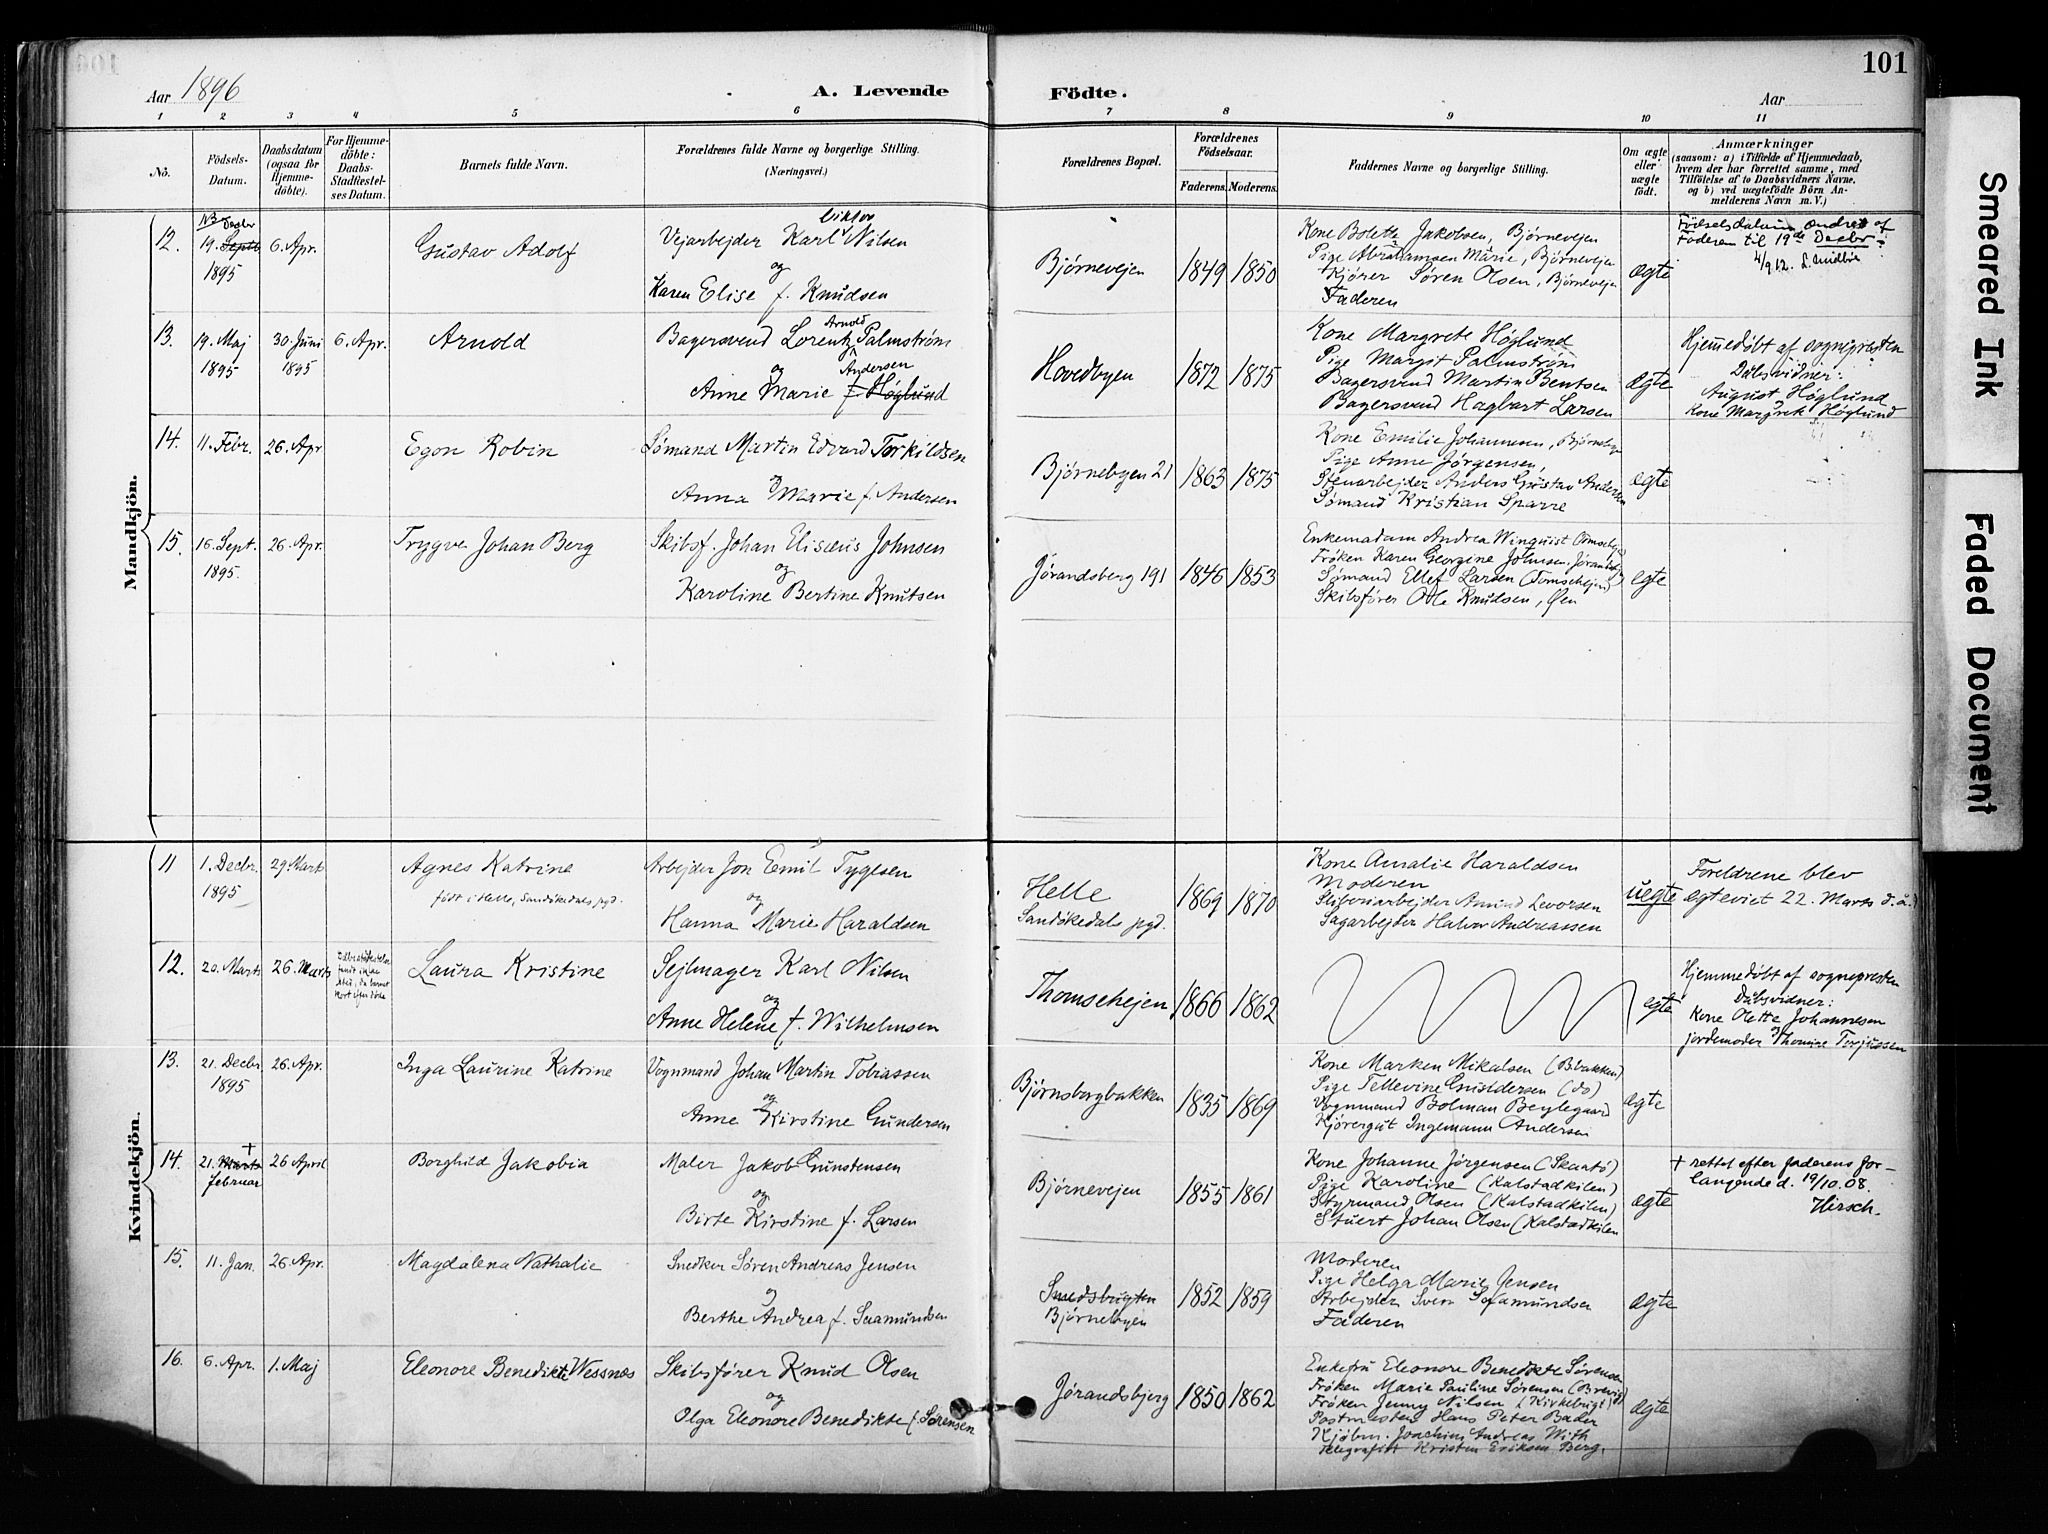 101
Aar 1896
A. Levende
Födte.
Aar
1 2 3 4 5 6 7 8 9 10 11
No.
Födsels-Datum.
Daabsdatum (ogsaa for Hjemme-döbte).
For Hjemme-döbte: Daabs-Stadfæstel-ses Datum.
Barnets fulde Navn.
Forældrenes fulde Navne og borgerlige Stilling. (Næringsvei.)
Forældrenes Bopæl.
Forældrenes Födselsaar.
Faderens. Moderens.
Faddernes Navne og borgerlige Stilling.
Om ægte eller uægte födt.
Anmærkninger
(saasom: a) i Tilfælde af Hjemmedaab,
hvem der har forrettet samme, med
Tilföielse af to Daabsvidners Navne,
og b) ved uægtefödte Börn An-
melderens Navn m. V.)
Mandkjön.
12.
NB Decbr
19. Septb
1895
6. Apr.
Gustav Adolf
Viktor
Vejarbejder Karl Nilsen
og
Karen Elise f. Knudsen
Bjørnevejen
1849
1850
Kone Bolette Jakobsen, Bjørnevejen
Pige Abrahamsen Marie, Bjørnevejen
Kjører Søren Olsen, Bjørnevejen
Faderen
ægte
Fødselsdatum ændret af
Faderen til 19de Decbr
4/9 12.
13.
19. Maj
1895
30. Juni
1895
6. Apr.
Arnold
Arnold
Bagersvend Lorentz Palmstrøm
og Andersen
Anne Marie f. Høglund
Hovedbyen
1872
1875
Kone Margrete Høglund
Pige Margit Palmstrøm
Bagersvend Martin Bentsen
Bagersvend Hagbart Larsen
ægte
Hjemmedøbt af sognepresten
Dåbsvidner:
August Høglund
Kone Margrete Høglund
14.
11. Febr.
26. Apr
Egon Robin
Sømand Martin Edvard Torkildsen
og
Anna Marie f. Andersen
Bjørnebyen 21
1863
1875
Kone Emilie Johannesen, Bjørnebyen
Pige Anne Jørgensen,
Stenarbejder Anders Gustav Andersen
Sømand Kristian Sparre
ægte
15.
16. Sept.
1895.
26. Apr.
Trygve Johan Berg
Skibsf. Johan Elisæus Johnsen
og
Karoline Bertine Knutsen
Jørandsberg 191
1846
1853
Enkemadam Andrea Winquist
Frøken Karen Georgine Johnsen, Jørandsbg
Sømand Ellef Larsen (Tomsehejen)
Skibsfører Ole Knudsen, Øen
ægte
Kvindekjön.
11
1. Decbr.
1895
29. Marts
Agnes Katrine
født i Helle, Sandøkedals pgd.
Arbejder Jon Emil Tygesen
og
Hanna Marie Haraldsen
Helle
Sandøkedals pgd.
1869
1870
Kone Amalie Haraldsen
Moderen
Sliberiarbejder Amund Levorsen
Sagarbejder Halvor Andreassen
uegte
Foreldrene blev
egteviet 22. Marts d.å.
12.
20. Marts
26. Marts
Laura Kristine
Sejlmager Karl Nilsen
og
Anne Helene f. Wilhelmsen
Thomsehejen
1866
1862
egte
Hjemmedøbt af sognepresten
Dåbsvidner:
Kone Olette Johannesen
jordemoder Thomine Terjussen
13.
21. Decbr
1895
26. Apr.
Inga Laurine Katrine
Vognmand Johan Martin Tobiassen
og
Anne Kirstine Gundersen
Bjørnsbergbakken
1835
1869
Kone Marken Mikalsen (B.bakken)
Pige Tellevine Gundersen (ds)
Vognmand Bolman Beylegaard
Kjørergut Ingemann Andersen
ægte
14.
+
21. Marts
februar
26 April
Borghild Jakobia
Maler Jakob Gunstensen
og
Birte Kirstine f. Larsen
Bjørnevejen
1855
1861
Kone Johanne Jørgensen (Skaatø)
Pige Karoline (Kalstadkilen)
Styrmand Olsen (Kalstadkilen)
Stuert Johan Olsen (Kalstadkilen
ægte
+ rettet efter faderens for-
langende d. 19/10.08.
Hirsch.
15.
11. Jan.
26. Apr.
Magdalena Nathalie
Snedker Søren Andreas Jensen
og
Berthe Andrea f. Saamundsen
Smedsbugten
Bjørnebyen
1852
1859
Moderen
Pige Helga Marie Jensen
Arbejder Sven Saamundsen
Faderen
ægte
16.
6. Apr.
1. Maj
Eleonore Benedikte Wessnæs
Skibsfører Knud Olsen
og
Olga Eleonore Benedikte f. Sørensen
Jørandsbjerg
1850
1862
Enkefru Eleonore Benedikte Sørensen
Frøken Marie Pauline Sørensen (Brevig)
Frøken Jenny Nilsen (Kirkebugt)
Postmester Hans Peter Bader
Kjøbm. Joachim Andreas With
Telegrafist Kristen Eriksen Berg.
ægte
Smeared Ink
Faded Document